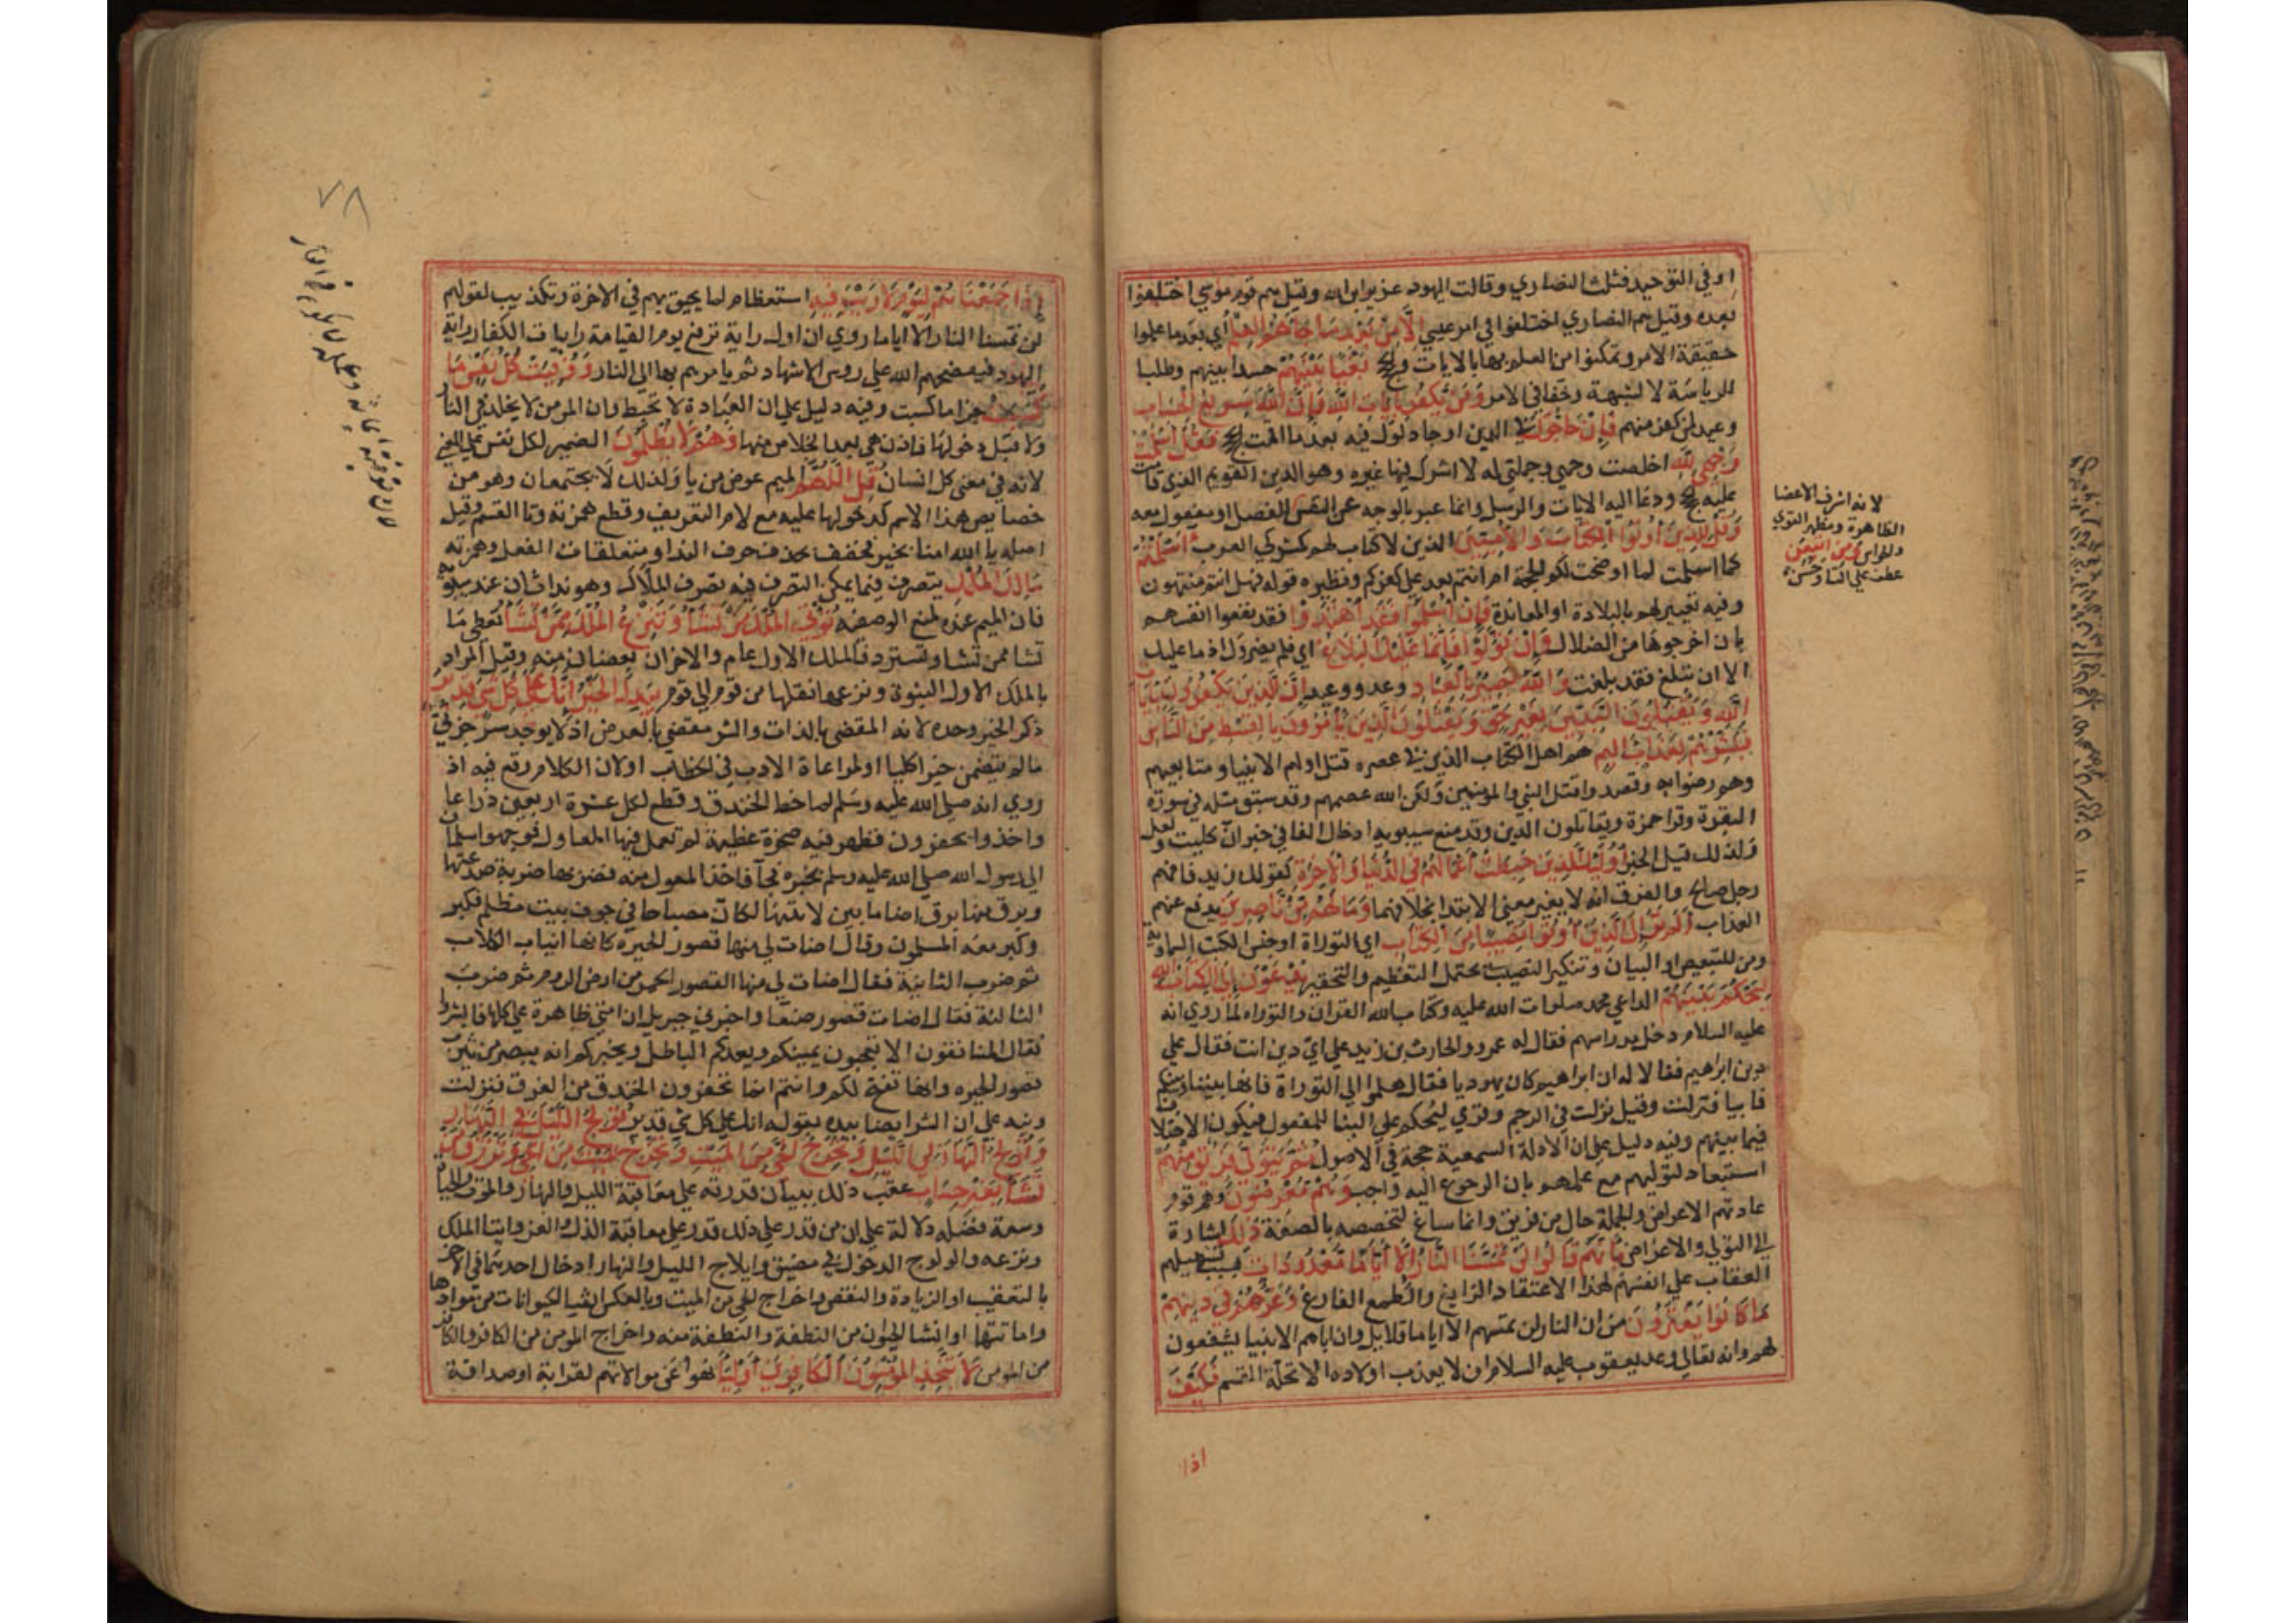 او في التوحيد فثلث النصاري وقالت اليهود عزير ابن الله وقيل هم قوم موسي اختلفوا
بعده وقيل هم النصاري اختلفوا في امر عيسي إلا من بعد ما جاءهم العلم أي بعد ما علموا
حقيقة الامر وتمكنوا من العلم بها بالايات و بغيا بينهم حسدا بينهم وطلبا
للرياسة لا لشبهة وخفا في الامر ومن يكفر بآيات الله فإن الله سريع الحساب
وعيد لمن كفر منهم فإن حاجوك في الدين او جادلوك فيه بعد ما اقمت فقل أسلمت
وجهي لله اخلصت وجهي وجملتي له لا اشرك فيها غيره وهو الدين القويم الذي قامت
عليه ودعا اليه الايات والرسل وانما عبر بالوجه عن النفس
وقل للذين أوتوا الكتاب والأميين الذين لا كتاب لهم كمشركي العرب أأسلمتم
كما اسلمت لما اوضحت لكم الحجة ام انتم بعد علي كفركم ونظيره قوله فهل انتم منتهون
وفيه تعيير لهم بالبلادة او المعاندة فإن أسلموا فقد اهتدوا فقد نفعوا انفسهم
بان اخرجوها من الضلال وإن تولوا فإنما عليك البلاغ اي فلم يضروك اذ ما عليك
الا ان تبلغ فقد بلغت والله بصير بالعباد وعد ووعيد إن الذين يكفرون بآيات
الله ويقتلون النبيين بغير حق ويقتلون الذين يأمرون بالقسط من الناس
فبشرهم بعذاب أليم هم اهل الكتاب الذين في عصره قتل اولهم الانبيا ومتابعيهم
وهم رضوا به وقصدوا قتل النبي والمؤمنين ولكن الله عصمهم وقد سبق مثله في سورة
البقرة وقرا حمزة ويقاتلون الذين وقد منع سيبويه ادخال الفا في خبر ان كليت ولعل
ولذلك قيل الخبر أولئك الذين حبطت أعمالهم في الدنيا والآخرة كقولك زيد فافهم
رجل صالح والفرق انه لا يغير معني الابتدا بخلافهما وما لهم من ناصرين يدفع عنهم
العذاب ألم تر إلى الذين أوتوا نصيبا من الكتاب اي التوراة او جنس الكتب السماوية
ومن للتبعيض او البيان وتنكير النصيب يحتمل التعظيم والتحقير يدعون إلى كتاب الله
ليحكم بينهم الداعي محمد صلوات الله عليه وكتاب الله القران والتوراه لما روي انه
عليه السلام دخل مدراسهم فقال له عمرو والحارث بن زيد علي اي دين انت فقال علي
دين ابراهيم فقالا له ان ابراهيم كان يهوديا فقال هلموا الي التوراة فانها بيننا وبينكم
فابيا فنزلت وقيل نزلت في الرجم وقري ليحكم علي البنا للمفعول فيكون الاختلاف
فيما بينهم وفيه دليل علي ان الادلة السمعية حجة في الاصول ثم يتولى فريق منهم
استبعاد لتوليهم مع علمهم بان الرجوع اليه واجب وهم معرضون وهم قوم
عادتهم الاعراض والجملة حال من فريق وانما ساغ لتخصصه بالصفة ذلك اشارة
الي التولي والاعراض بأنهم قالوا لن تمسنا النار إلا أياما معدودات بسبب تسهيلهم
العقاب علي انفسهم لهذا الاعتقاد الزايغ والطمع الفارغ وغرهم في دينهم
ما كانوا يفترون من ان النار لن تمسهم الا اياما قلايل وان اباهم الانبيا يشفعون
لهم وانه تعالي وعد يعقوب عليه السلام ان لا يعذب اولاده الا تحلة القسم فكيف
اذا
لانه اشرف الاعضا
الظاهرة ومظهر القوي
والحواس ومن اتبعن
عطف علي التا وحسن
٧٨
إذا جمعناهم ليوم لا ريب فيه استعظام لما يحيق بهم في الاخرة وتكذيب لقولهم
لن تمسنا النار الا اياما روي ان اول راية ترفع يوم القيامة من رايات الكفار راية
اليهود فيفضحهم الله علي روس الاشهاد ثم يامر بهم الي النار ووفيت كل نفس ما
كسبت جزا ما كسبت وفيه دليل علي ان العبادة لا تحبط وان المومن لا يخلد في النار
ولا قبل دخولها فاذن هي بعد الخلاص منها وهم لا يظلمون الضمير لكل نفس علي المعني
لانه في معني كل انسان قل اللهم الميم عوض من يا ولذلك لا يجتمعان وهو من
خصايص هذا الاسم كدخولها عليه مع لام التعريف وقطع همزته وتا القسم وقيل
اصله يا الله امنا بخير فخفف بحذف حرف الندا ومتعلقات الفعل وهمزته
مالك الملك يتصرف فيما يمكن التصرف فيه تصرف الملاك وهو ندا ثان عند سيبويه
فان الميم عنده تمنع الوصفية تؤتي الملك من تشاء وتنزع الملك ممن تشاء تعطي ما
تشا ممن تشا وتسترد فالملك الاول عام والاخران بعضان منه وقيل المراد
بالملك الاول النبوة ونزعها نقلها من قوم الي قوم بيدك الخير إنك على كل شيء قدير
ذكر الخير وحده لانه المقضي بالذات والشر مقضي بالعرض اذ لا يوجد شر جزئي
ما لم يتضمن خيرا كليا او لمراعاة الادب في الخطاب او لان الكلام وقع فيه اذ
روي انه صلي الله عليه وسلم لما خط الخندق وقطع لكل عشرة اربعين ذراعا
واخذوا يحفرون فظهر فيه صخرة عظيمة لم تعمل فيها المعاول فوجهوا سلمان
الي رسول الله صلي الله عليه وسلم يخبره فجا فاخذ المعول منه فضربها ضربة صدعتها
وبرق منها برق اضا ما بين لابتيها لكان مصباحا في جوف بيت مظلم فكبر
وكبر معه المسلمون وقال اضات لي منها قصور الحيرة كانها انياب الكلاب
ثم ضرب الثانية فقال اضات لي منها القصور الحمر من ارض الروم ثم ضرب
الثالثة فقال اضات قصور صنعا واخبرني جبريل ان امتي ظاهرة علي كلها فابشروا
فقال المنافقون الا تعجبون يمنيكم ويعدكم الباطل ويخبركم انه يبصر من يثرب
قصور الحيره وانها تفتح لكم وانتم انما تحفرون الخندق من الفرق فنزلت
ونبه علي ان الشر ايضا بيده بقوله انك علي كل شي قدير تولج الليل في النهار
وتولج النهار في الليل وتخرج الحي من الميت وتخرج الميت من الحي وترزق من
تشاء بغير حساب عقب ذلك ببيان قدرته علي معاقبة الليل والنهار والموت والحياة
وسعة فضله دلالة علي ان من قدر علي ذلك قدر علي معاقبة الذل والعز وايتا الملك
ونزعه والولوج الدخول في مضيق وايلاج الليل والنهار ادخال احدهما في الاخر
بالتعقيب او الزيادة والنقص واخراج الحي من الميت وبالعكس انشا الحيوانات من موادها
واماتتها او انشا الحيوان من النطفة والنطفة منه واخراج المومن من الكافر والكافر
من المومن لا يتخذ المؤمنون الكافرين أولياء نهوا عن موالاتهم لقرابة او صداقة